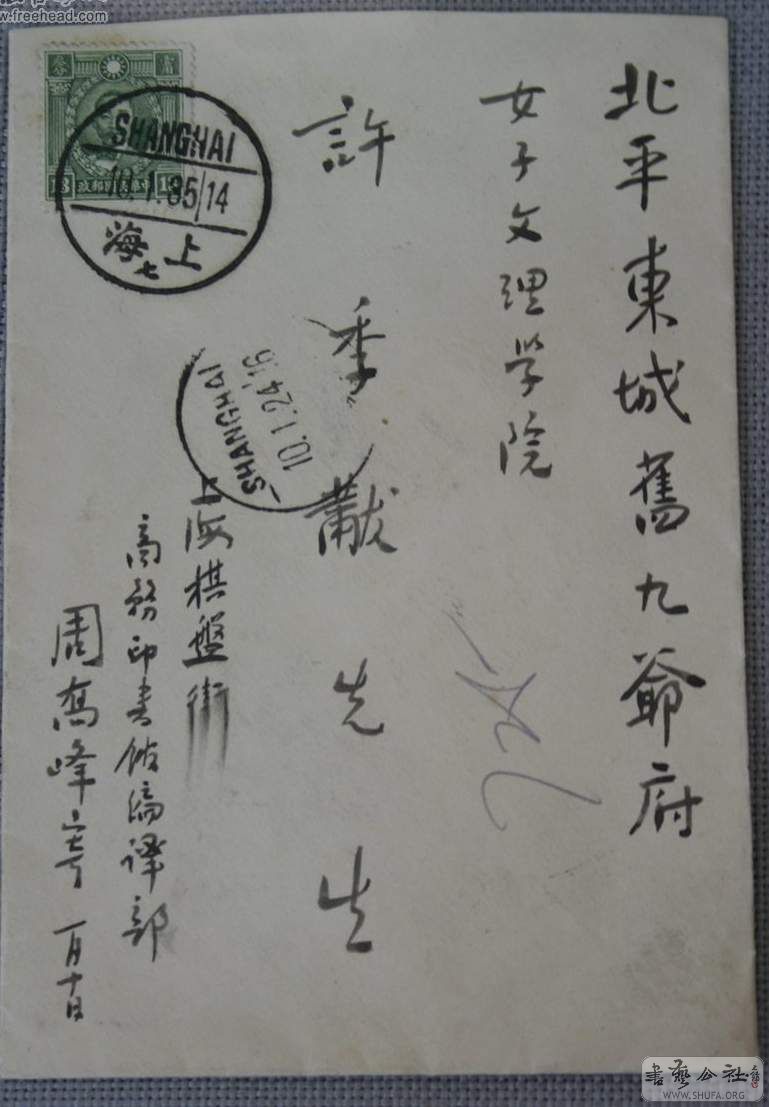 北平東城舊九爺府
女子文理学院
許季黻先生
上海棋盤街
商務印书馆编譯部
周喬峰寄 一月十日
SHANGHAI
10.1.35/14
海 上
七
SHANGHAI
10.1.24.16
www.freehead.com
書藝公社
WWW.SHUFA.ORG